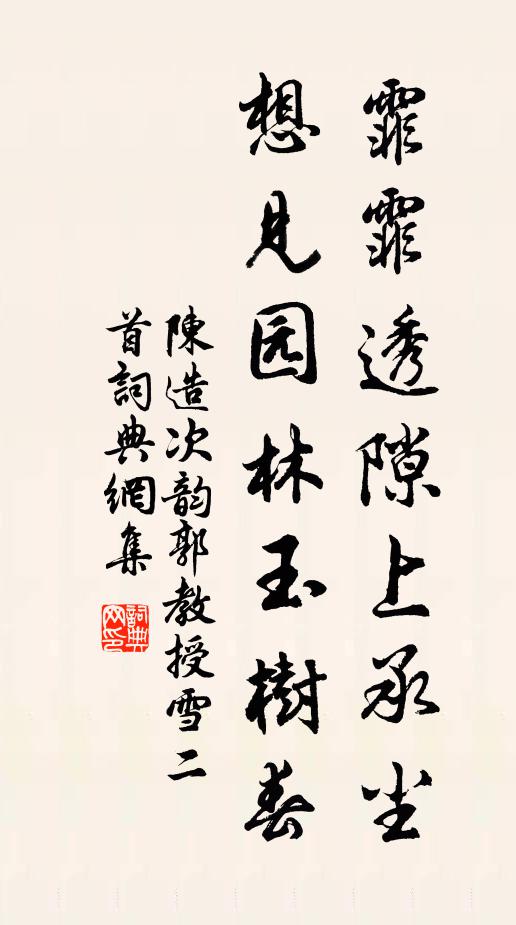 霏霏透隙上承尘
想见园林玉樹春
陳造次韵郭教授雪二
首詞典網集
詞典
网印